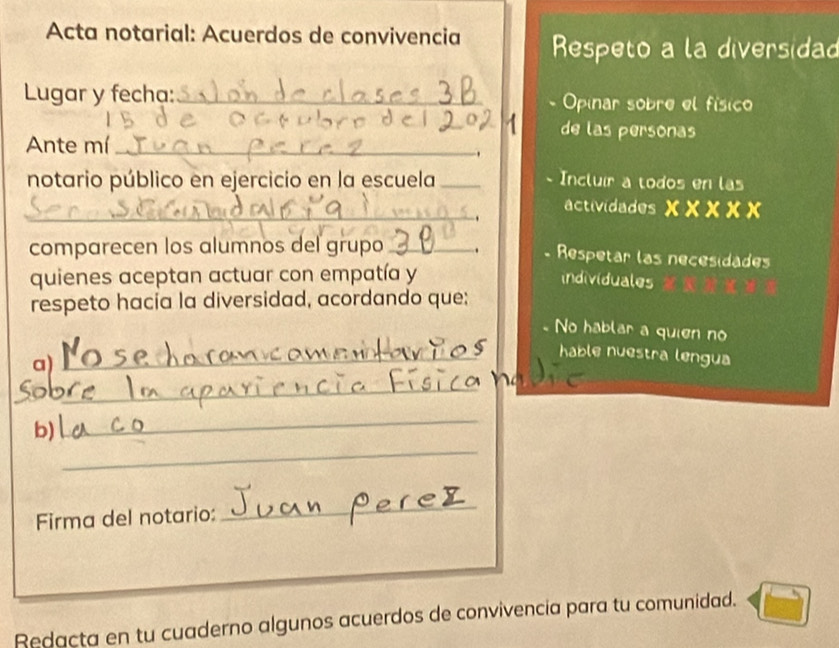 Acta notarial: Acuerdos de convivencia
Lugar y fecha: Salon de clases 3B
15 de octubre del 2021
Ante mí Juan perez,
notario público en ejercicio en la escuela
Sec
comparecen los alumnos del grupo 3B.
quienes aceptan actuar con empatía y
respeto hacia la diversidad, acordando que:
a) No se haran comentarios
Sobre la apariencia Física nadie
b) la co
Firma del notario: Juan perez
Respeto a la diversidad
- Opinar sobre el físico
de las personas
- Incluir a todos en las
actividades X X X X X
- Respetar las necesidades
individuales X X X X X X
- No hablar a quien no
hable nuestra lengua
Redacta en tu cuaderno algunos acuerdos de convivencia para tu comunidad.